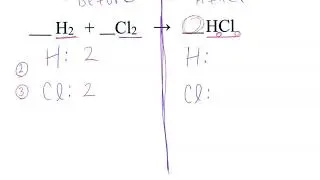 Before After
__ H₂ + __Cl₂ → __HCl
H: 2 H:
② 
③ Cl: 2 Cl: